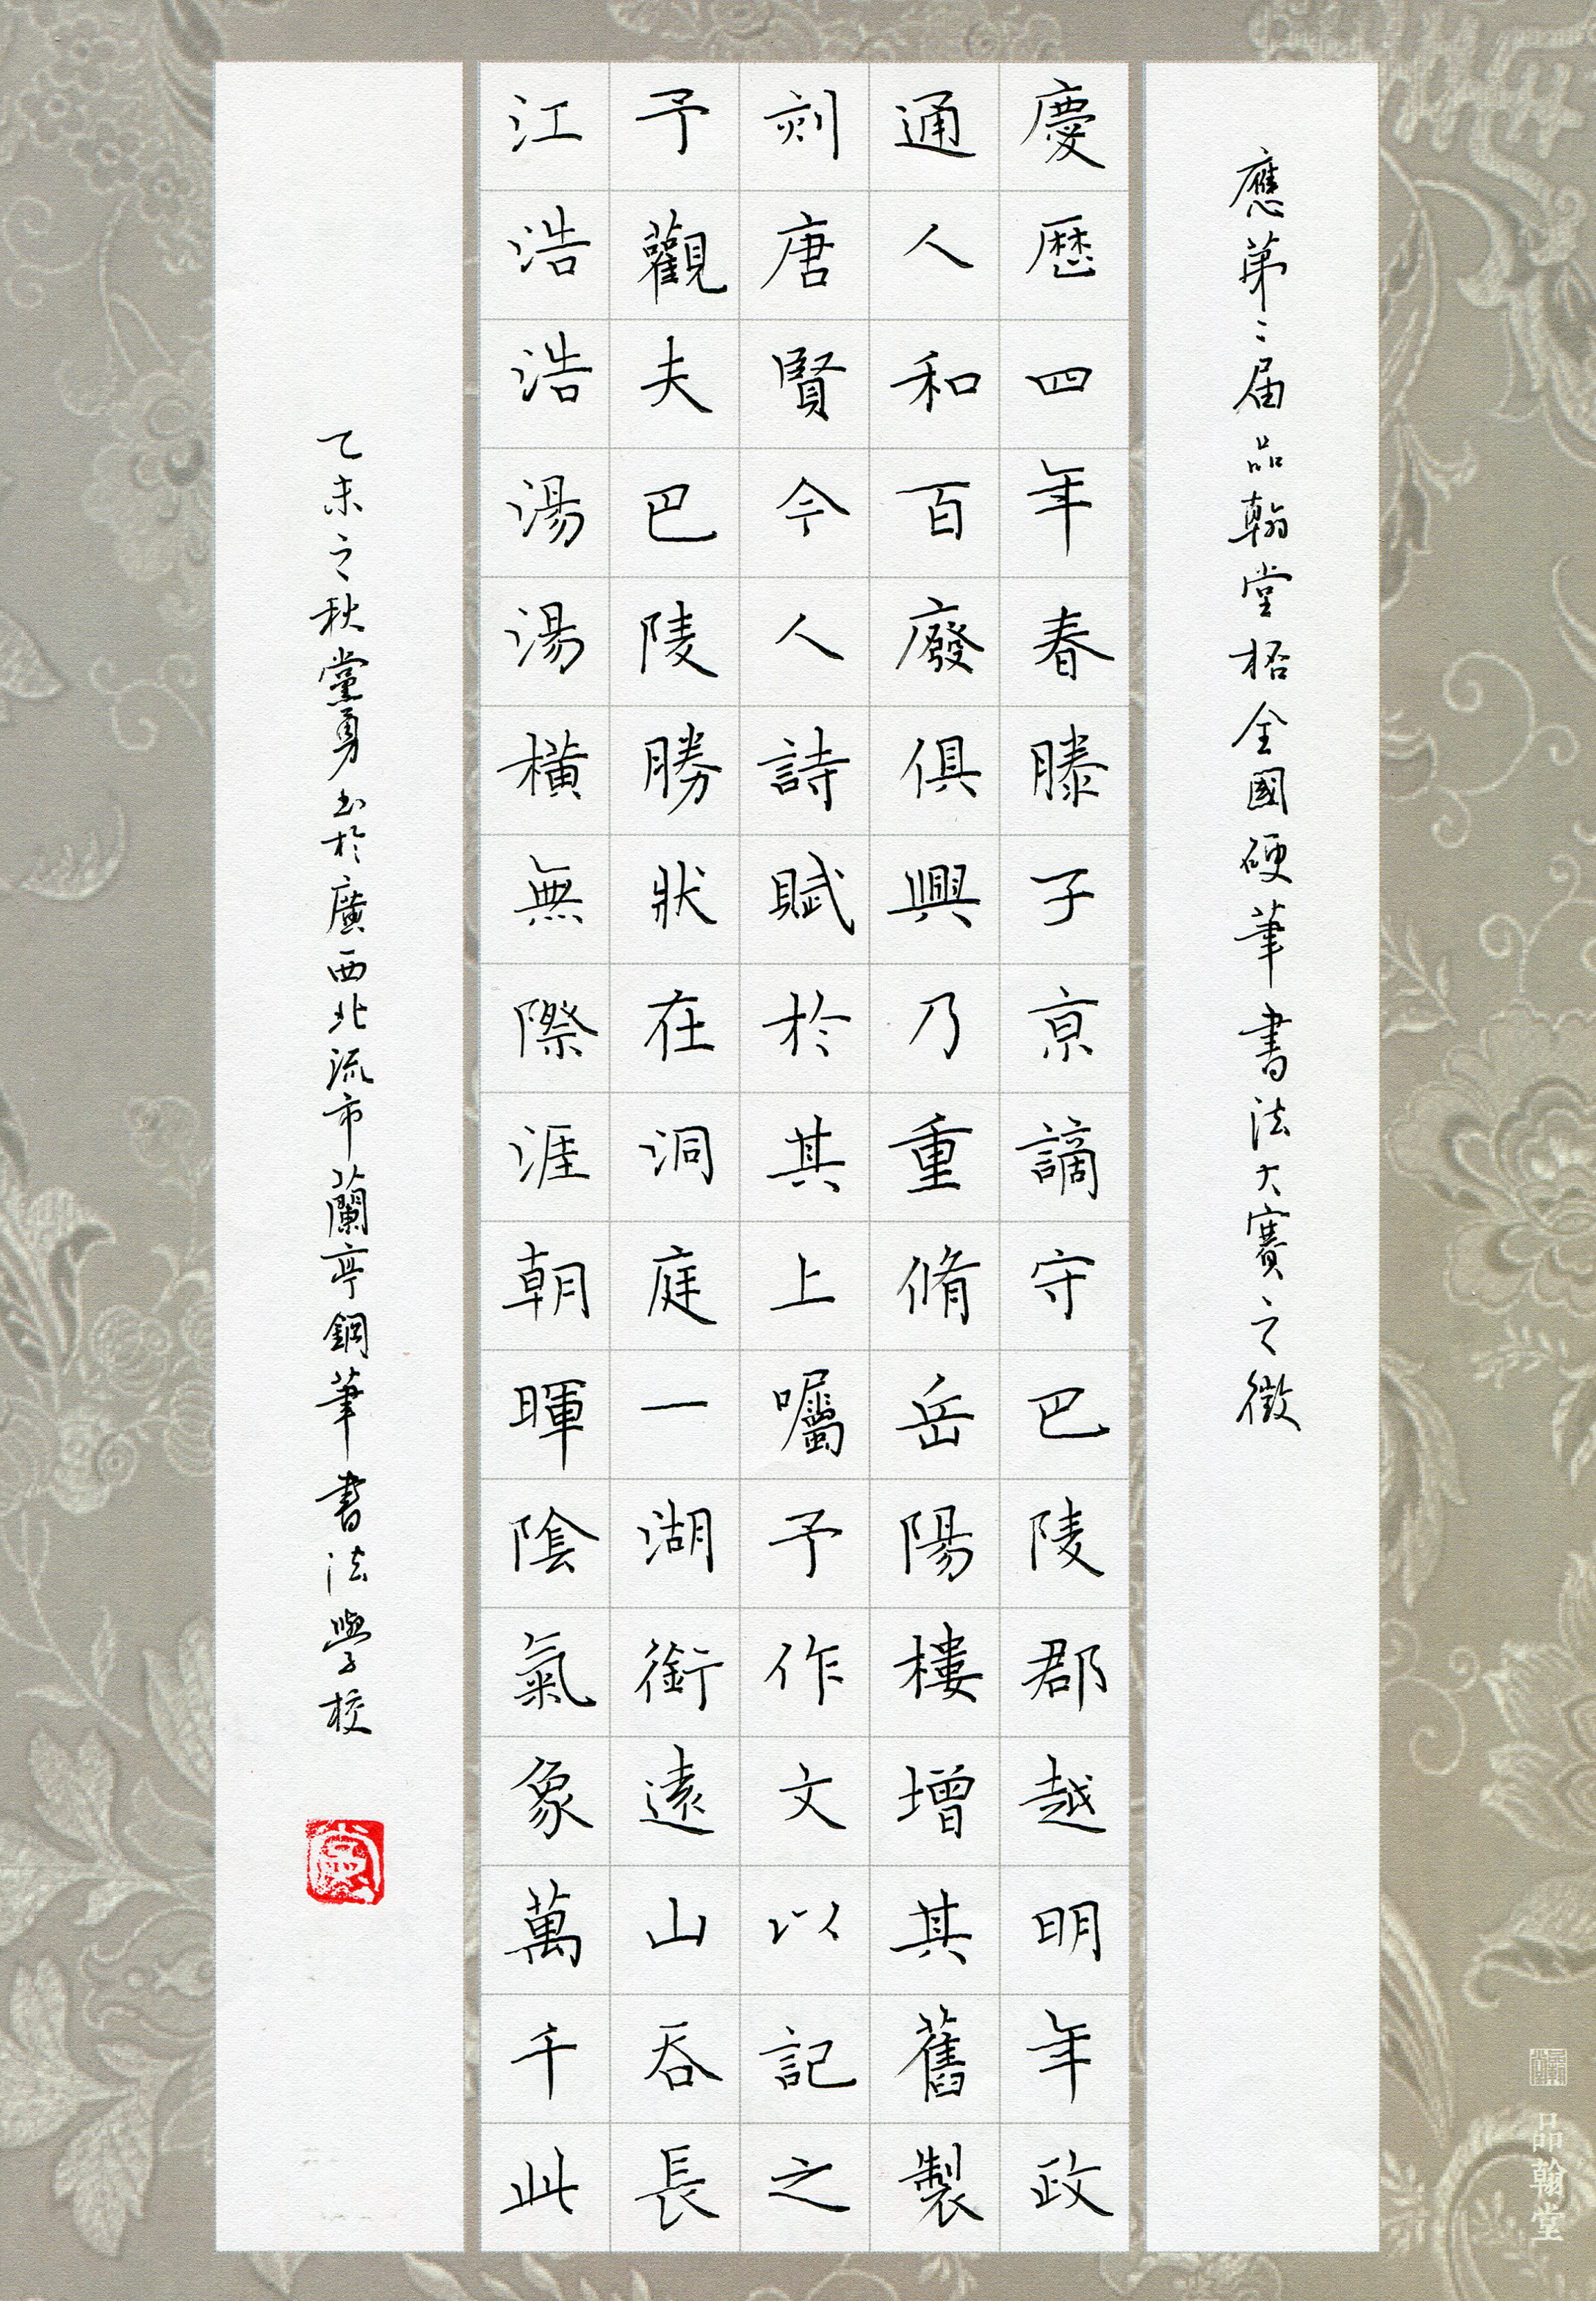 應第二届品翰堂桮全國硬筆書法大賽之徵
慶歷四年春滕子亰謫守巴陵郡越明年政
通人和百廢俱興乃重脩岳陽樓增其舊製
刻唐賢今人詩賦於其上囑予作文以記之
予觀夫巴陵勝狀在洞庭一湖銜遠山吞長
江浩浩湯湯橫無際涯朝暉陰氣象萬千此
乙未之秋黨勇书於廣西北流市蘭亭鋼筆書法學校
品翰堂